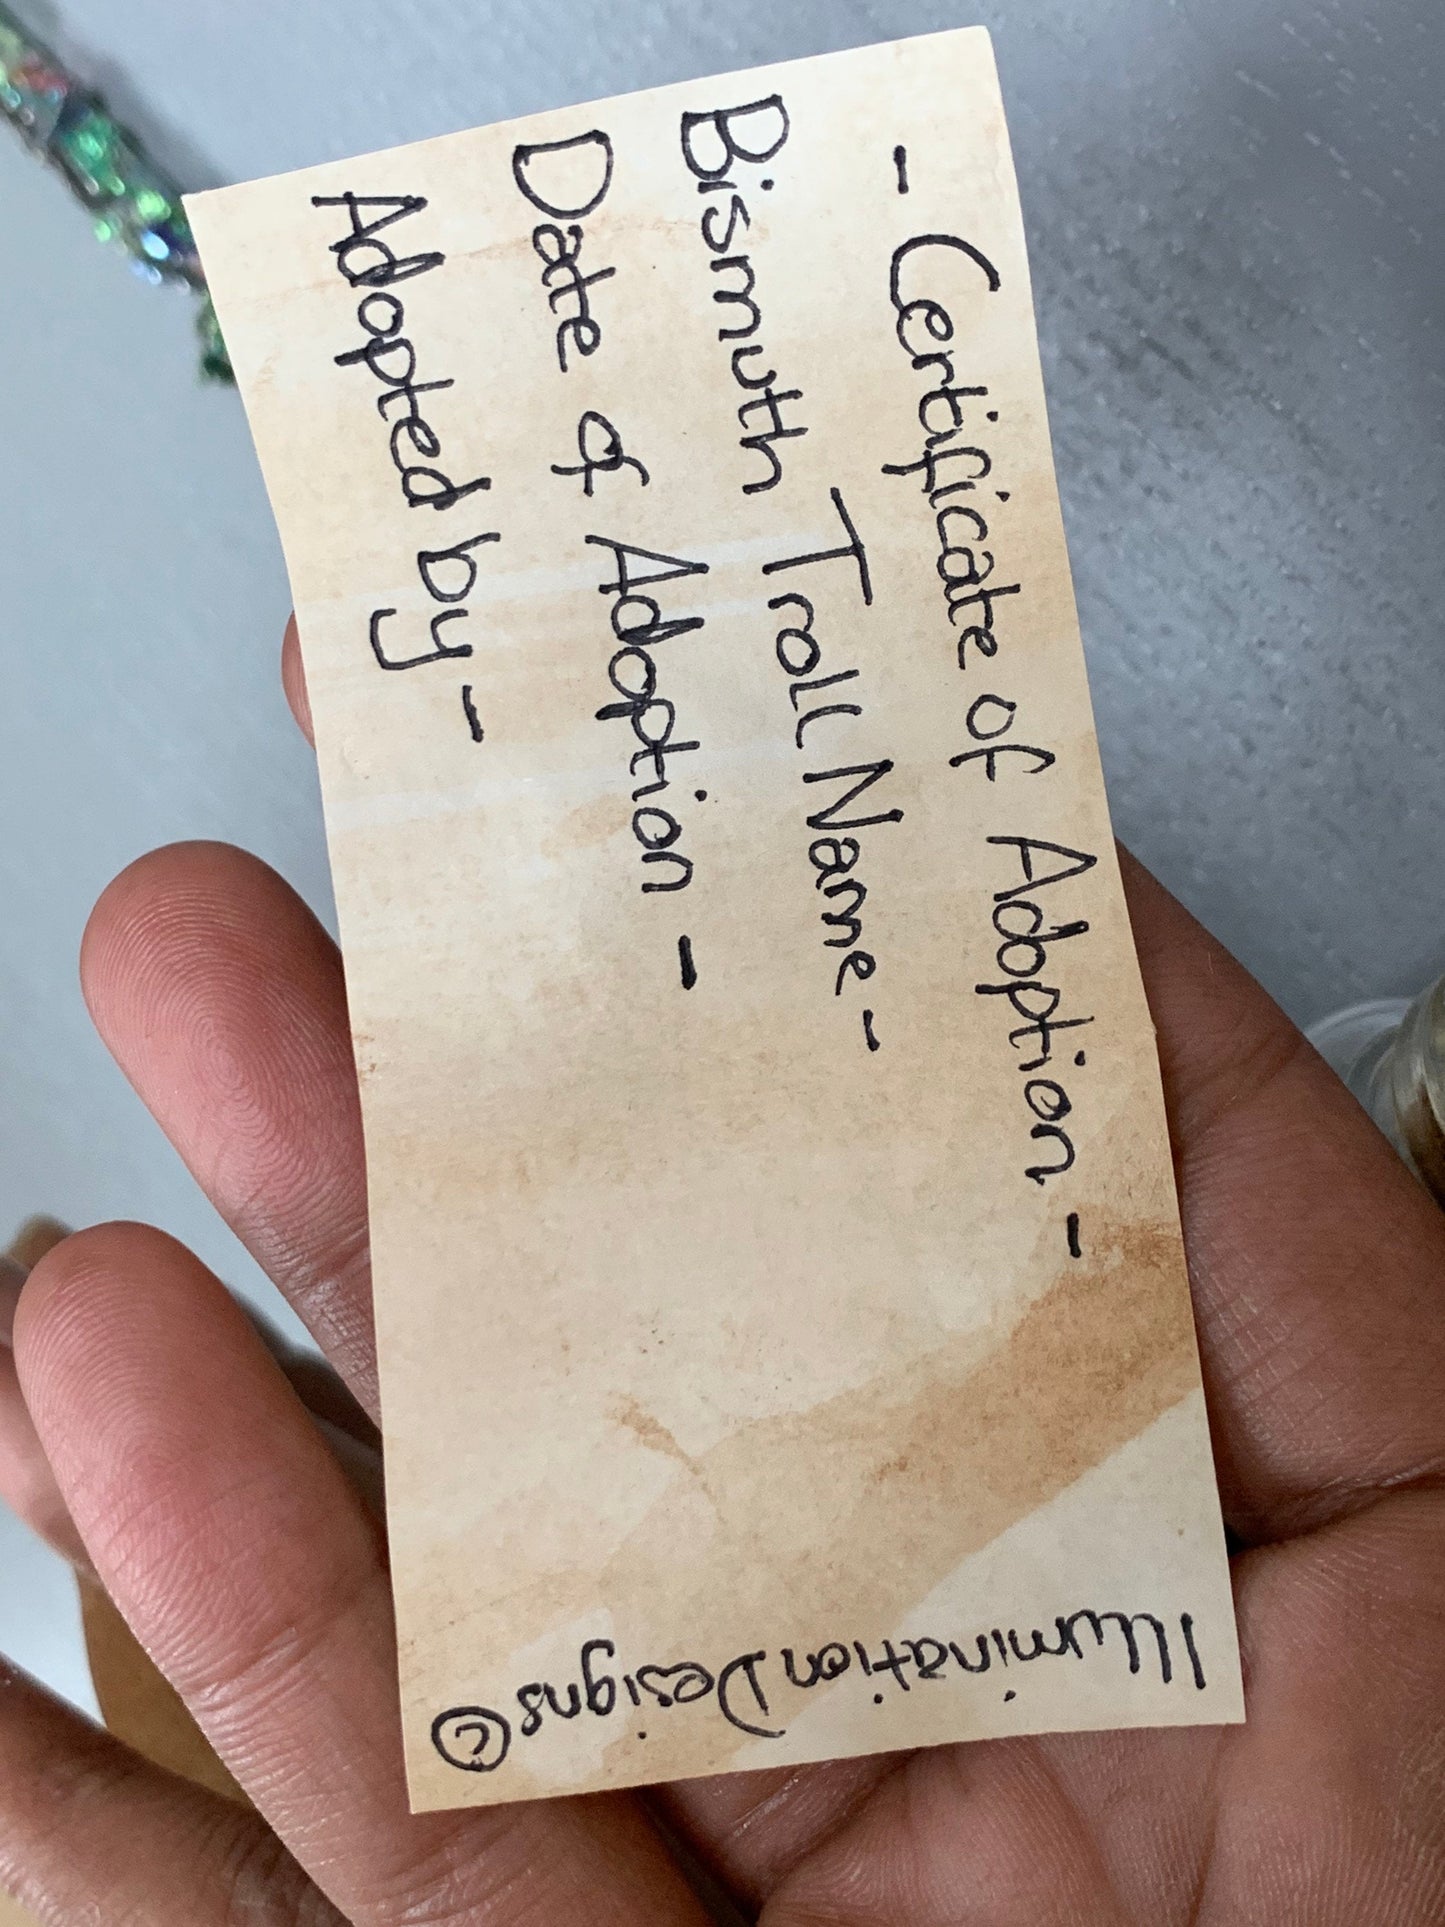 - Certificate of Adoption -
Bismuth Troll Name -
Date of Adoption -
Adopted by -
Illumination Designs ©